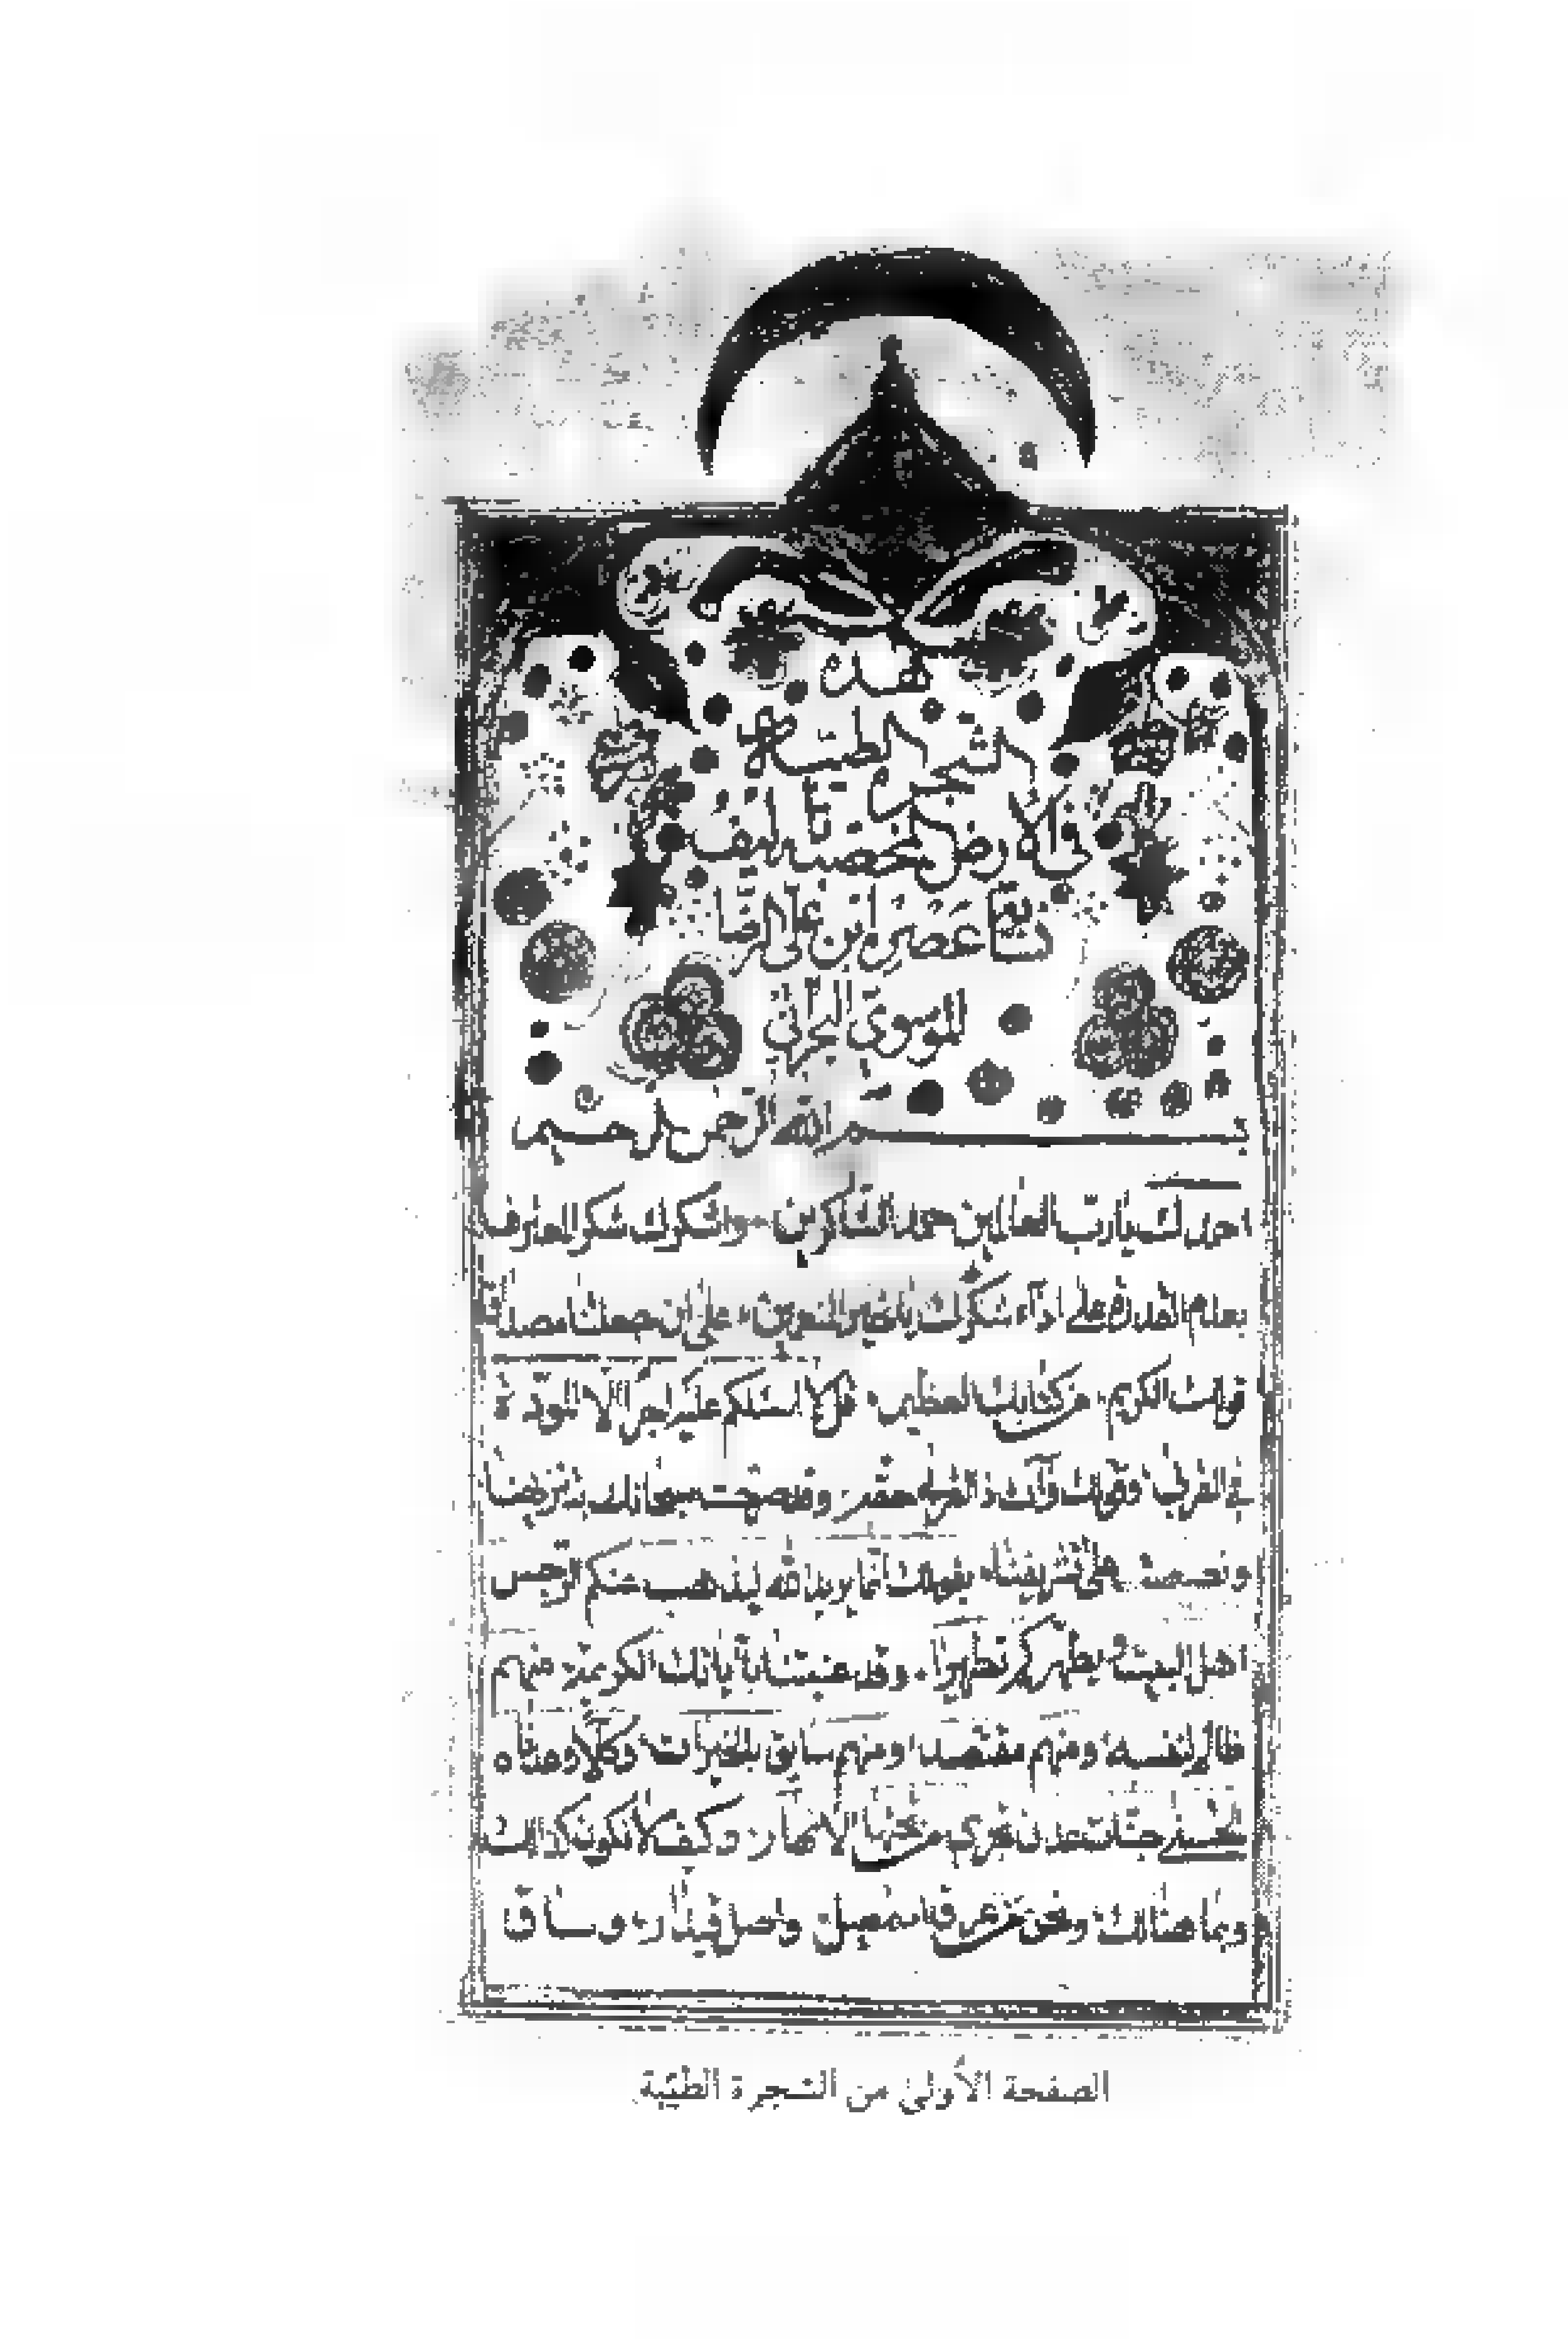 هذه
الشجرة الطيبة
في الأرض المخصبة تأليف
ثقة عصره ابن علي الرضا
الموسوي البحراني
بسم الله الرحمن الرحيم
احمدك يا رب العالمين حمد الشاكرين واشكرك شكر المعترف
بعدم القدرة على اداء شكرك يا خير المنعمين على ان جعلتنا مصداق
قولك الكريم من كتابك العظيم قل لا اسئلكم عليه اجرا الا المودة
في القربى وقولك وآت ذا القربى حقه وقد صرحت سبحانك بتنزيهنا
ونصصت على تشريفنا بقولك انما يريد الله ليذهب عنكم الرجس
اهل البيت ويطهركم تطهيرا وقد عنيتنا بآياتك الكريمة فمنهم
ظالم لنفسه ومنهم مقتصد ومنهم سابق بالخيرات وكلا وعدناه
الحسنى جنات عدن تجري من تحتها الانهار وكيف لا نكون كذلك
وبما هنالك ونحن من عرق واصل وساق
الصفحة الأولى من الشجرة الطيّبة